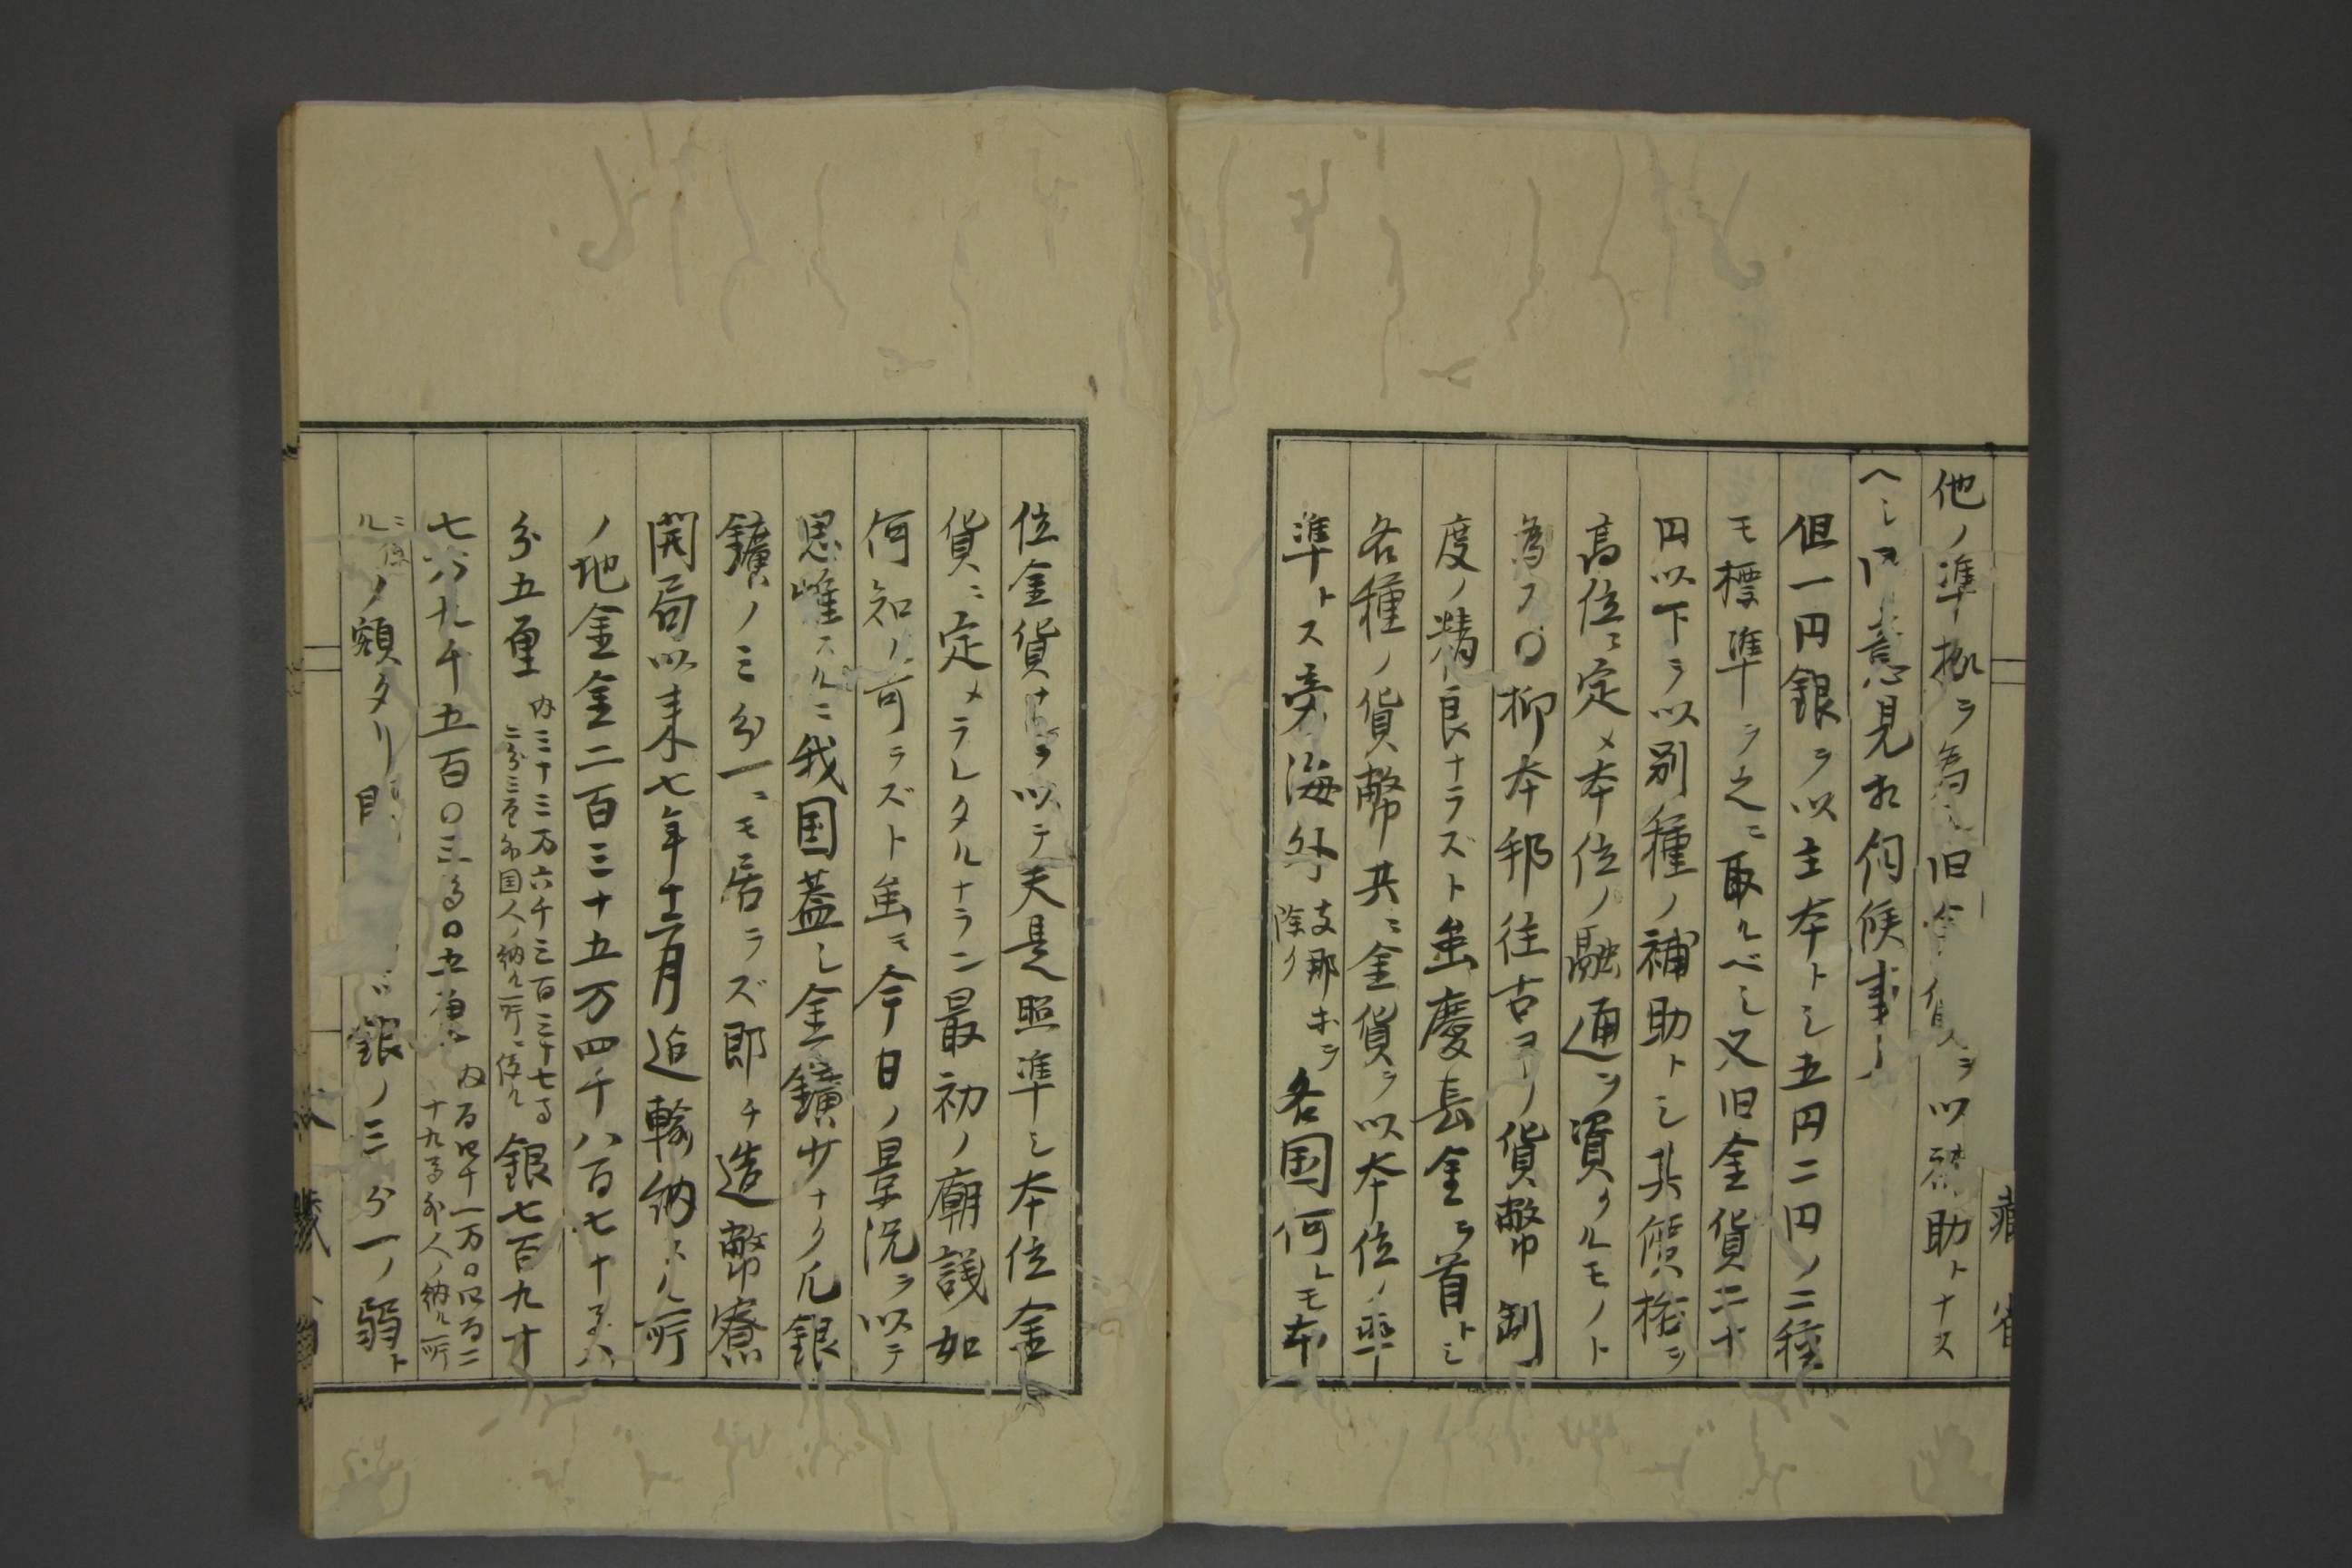 他ノ準拠ヲ為シ旧金貨ヲ以補助トナス
ヘシ 意見相伺候事
但一円銀ヲ以主本トシ五円二円ノ二種
モ標準ヲ之ニ取ルベシ又旧金貨二十
円以下ヲ以別種ノ補助トシ其價格ヲ
高位ニ定メ本位ノ融通ヲ資クルモノト
為ス〇抑本邦往古ヨリノ貨幣制
度ノ精良ナラズト雖慶長金ヲ首トシ
各種ノ貨幣共ニ金貨ヲ以本位ノ準
準トス旁海外支那ホヲ除ク各国何レモ本
藏省
位金貨ナルヲ以テ夫是照準シ本位金
貨ニ定メラレタルナラン最初ノ廟議如
何知ル可ラズト雖モ今日ノ景況ヲ以テ
思惟スルニ我国蓋シ金鑛少ナク凡銀
鑛ノ三分一ニモ居ラズ即チ造幣寮
開局以来七年十二月迄輸納スル所
ノ地金金二百三十五万四千八百七十
分五厘 内三十三万六千三百三十七
二分三厘外国人ノ納ル所ニ係ル 銀七百九十
七 九千五百〇三 〇五
内百四十一万〇四百二
十九 外人ノ納ル所
ニ係
ル ノ額タリ 銀ノ三分一ノ弱ト